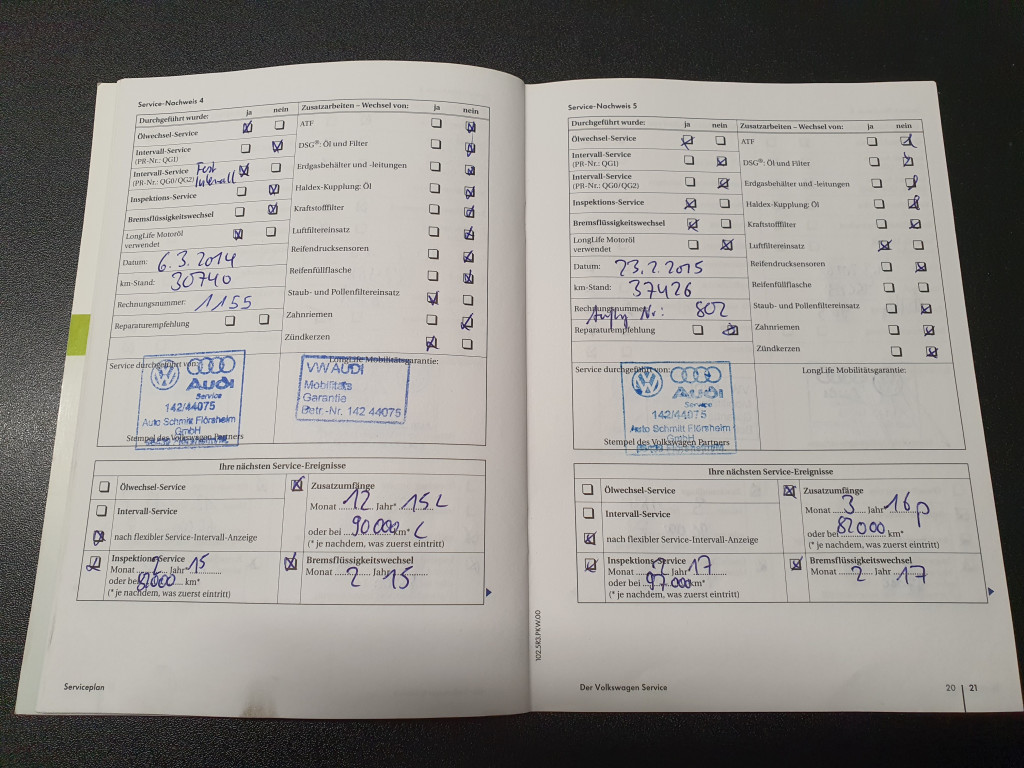 Service-Nachweis 4
Durchgeführt wurde: ja nein
Ölwechsel-Service
Intervall-Service
(PR-Nr.: QG1)
Intervall-Service
(PR-Nr.: QG0/QG2) Fest Intervall
Inspektions-Service
Bremsflüssigkeitswechsel
LongLife Motoröl
verwendet
Datum: 6.3.2014
km-Stand: 30740
Rechnungsnummer: 1155
Reparaturempfehlung
Zusatzarbeiten – Wechsel von: ja nein
ATF
DSG®: Öl und Filter
Erdgasbehälter und -leitungen
Haldex-Kupplung: Öl
Kraftstofffilter
Luftfiltereinsatz
Reifendrucksensoren
Reifenfüllflasche
Staub- und Pollenfiltereinsatz
Zahnriemen
Zündkerzen
Service durchgeführt von:
Audi
Service
142/44075
Auto Schmitt Flörsheim
GmbH
Stempel des Volkswagen Partners
LongLife Mobilitätsgarantie:
VW AUDI
Mobilitäts
Garantie
Betr.-Nr. 142 44075
Ihre nächsten Service-Ereignisse
Ölwechsel-Service
Intervall-Service
nach flexibler Service-Intervall-Anzeige
Zusatzumfänge
Monat 12 Jahr* 15 L
oder bei 90.000 km* L
(* je nachdem, was zuerst eintritt)
Inspektions-Service
Monat Jahr* 15
oder bei km*
(* je nachdem, was zuerst eintritt)
Bremsflüssigkeitswechsel
Monat 2 Jahr 15
Serviceplan
Service-Nachweis 5
Durchgeführt wurde: ja nein
Ölwechsel-Service
Intervall-Service
(PR-Nr.: QG1)
Intervall-Service
(PR-Nr.: QG0/QG2)
Inspektions-Service
Bremsflüssigkeitswechsel
LongLife Motoröl
verwendet
Datum: 23.2.2015
km-Stand: 37426
Rechnungsnummer: Auftg Nr.: 802
Reparaturempfehlung
Zusatzarbeiten – Wechsel von: ja nein
ATF
DSG®: Öl und Filter
Erdgasbehälter und -leitungen
Haldex-Kupplung: Öl
Kraftstofffilter
Luftfiltereinsatz
Reifendrucksensoren
Reifenfüllflasche
Staub- und Pollenfiltereinsatz
Zahnriemen
Zündkerzen
Service durchgeführt von:
Audi
Service
142/44075
Auto Schmitt Flörsheim
GmbH
Stempel des Volkswagen Partners
LongLife Mobilitätsgarantie:
Ihre nächsten Service-Ereignisse
Ölwechsel-Service
Intervall-Service
nach flexibler Service-Intervall-Anzeige
Zusatzumfänge
Monat 3 Jahr 16 p
oder bei 82000 km*
(* je nachdem, was zuerst eintritt)
Inspektions-Service
Monat 2 Jahr 17
oder bei 97.000 km*
(* je nachdem, was zuerst eintritt)
Bremsflüssigkeitswechsel
Monat 2 Jahr 17
102.5R3.PKW.00
Der Volkswagen Service
20 21